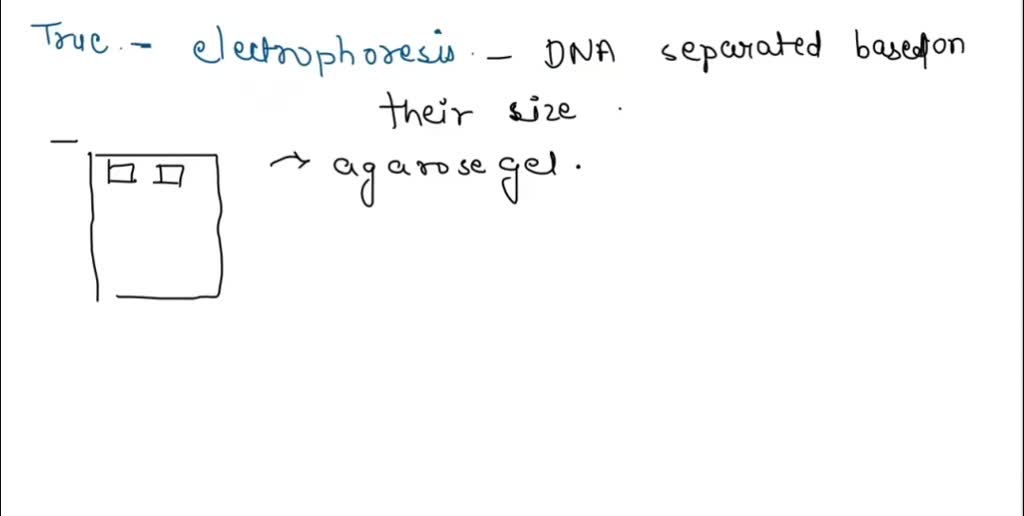 True. - electrophoresis. - DNA separated based on
their size.
-
→ agarose gel.